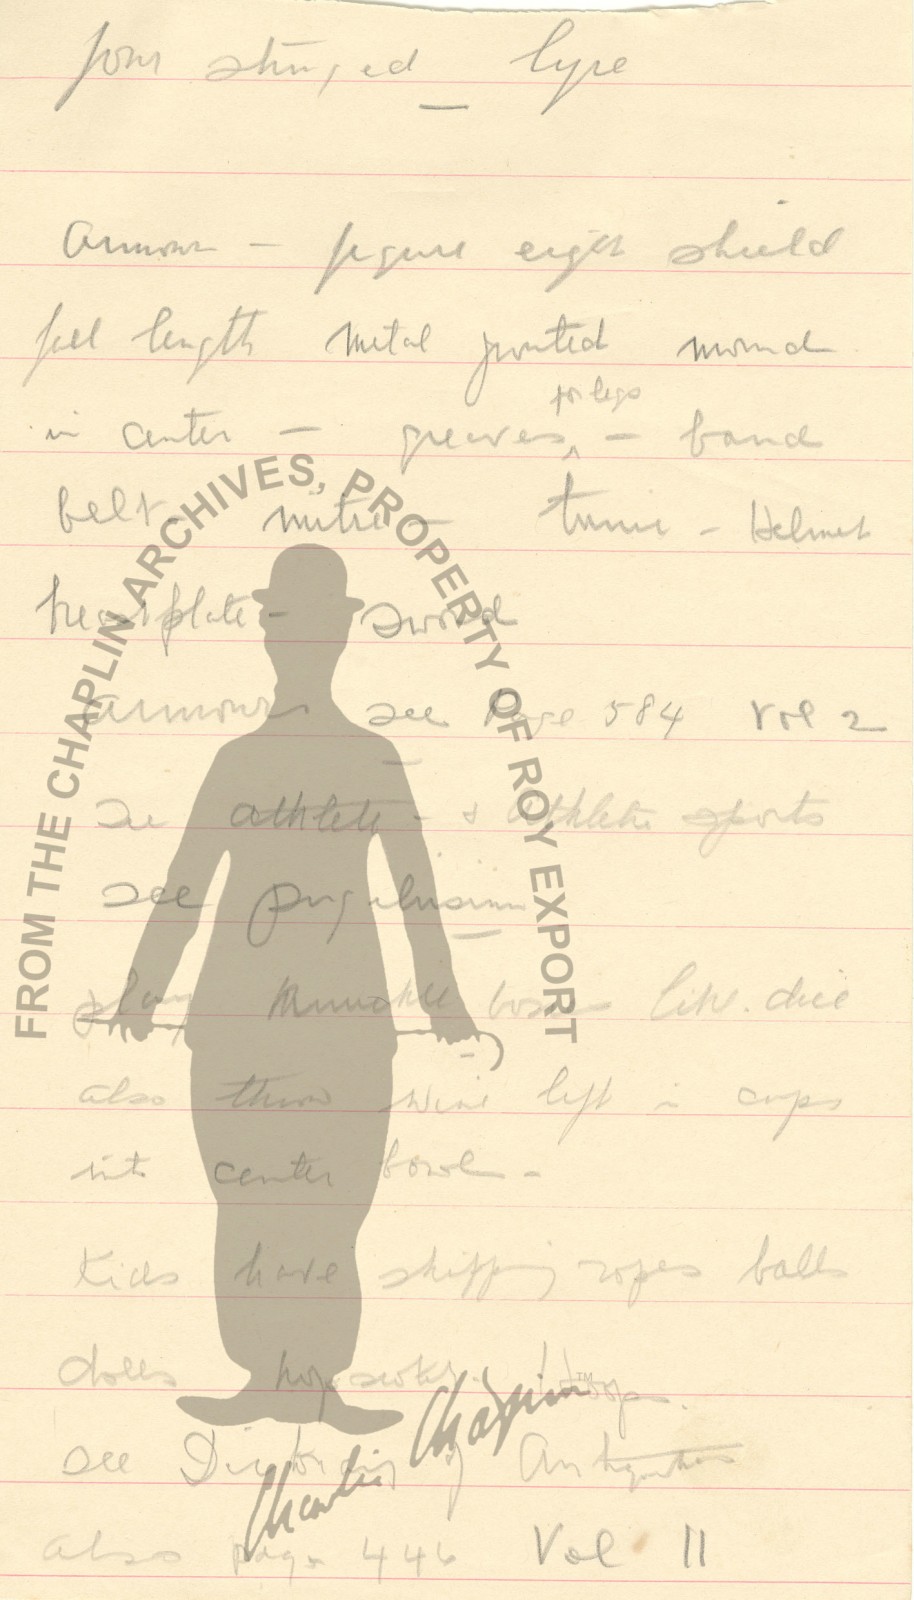 four stringed lyre
—
Armour — figure eight shield
full length metal pointed mound
in center — greaves ^for legs — band
belt - mitre - tunic - Helmet
breastplate - sword
armour see page 584 Vol 2
—
see athlete - & athletic sports
see pugilism
—
play knuckle bones like dice
-
also throw wine left in cups
into center bowl -
Kids have skipping ropes balls
dolls hopscotch hoops.
see Dictionary of Antiquities
also page 446 Vol II
FROM THE CHAPLIN ARCHIVES, PROPERTY OF ROY EXPORT
Charlie Chaplin™